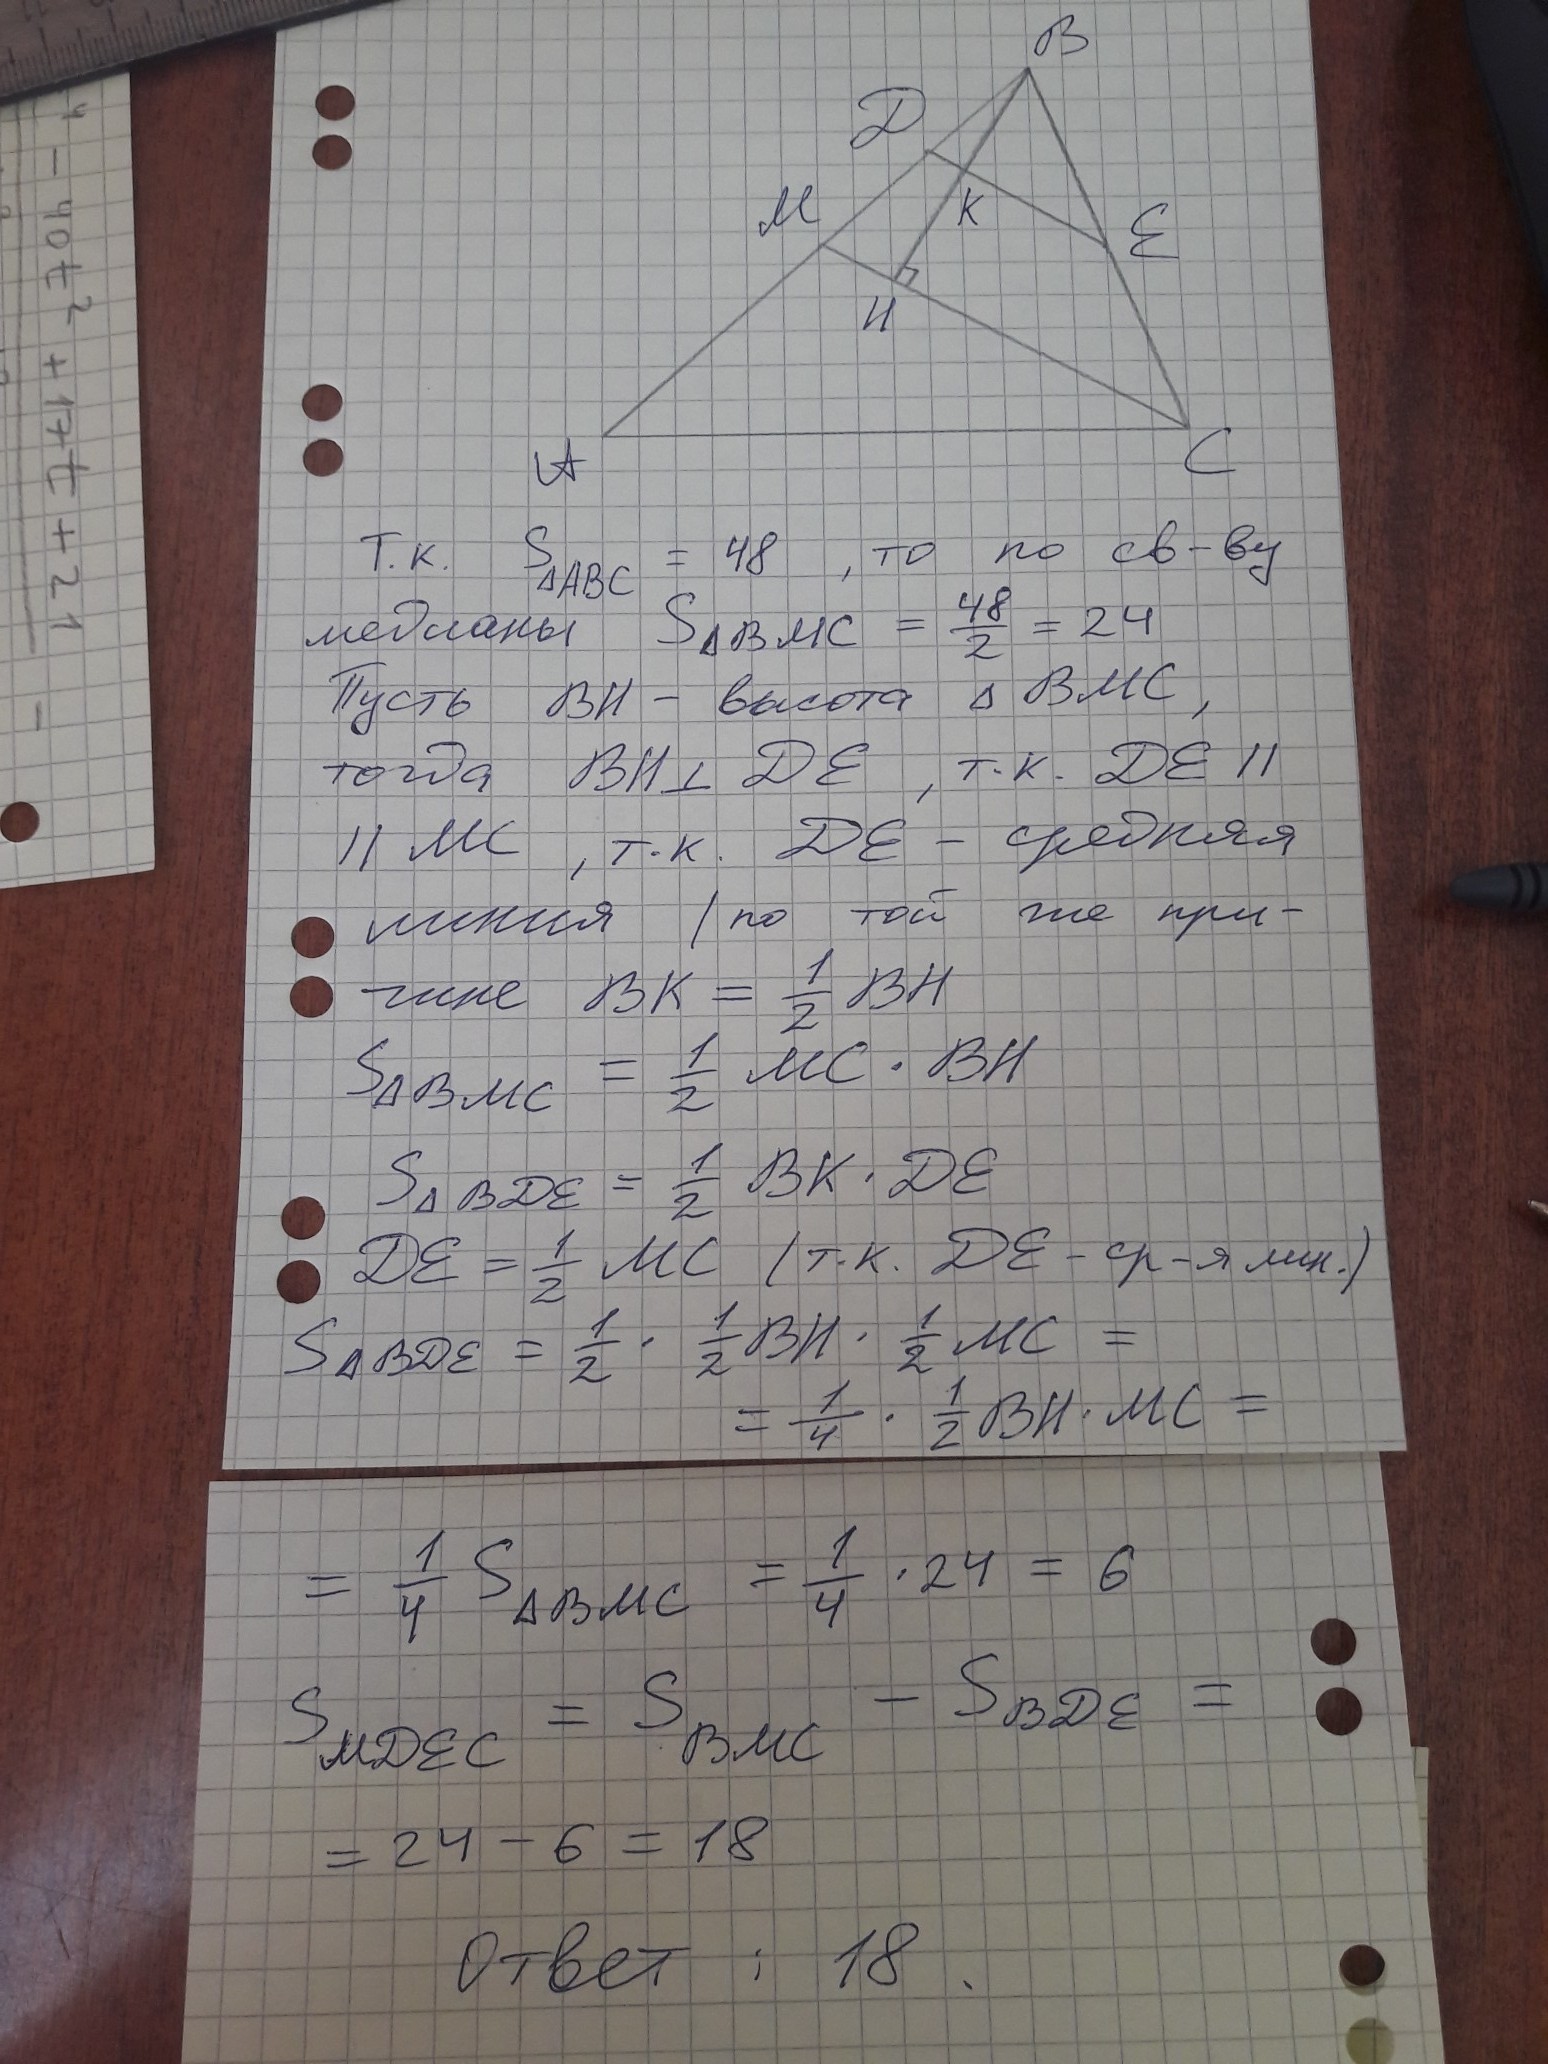 B
Д
M
K
E
H
A
C
Т.к. S△ABC = 48, то по св-ву
медианы S△BMC = 48/2 = 24
Пусть BH - высота △ BMC,
тогда BH ⊥ DE, т.к. DE ||
|| MC, т.к. DE - средняя
линия / по той же при-
чине BK = 1/2 BH
S△BMC = 1/2 MC · BH
S△BDE = 1/2 BK · DE
DE = 1/2 MC (т.к. DE - ср-я лин.)
S△BDE = 1/2 · 1/2 BH · 1/2 MC =
= 1/4 · 1/2 BH · MC =
= 1/4 S△BMC = 1/4 · 24 = 6
SMDEC = SBMC - SBDE =
= 24 - 6 = 18
Ответ: 18.
- 40t² + 17t + 21